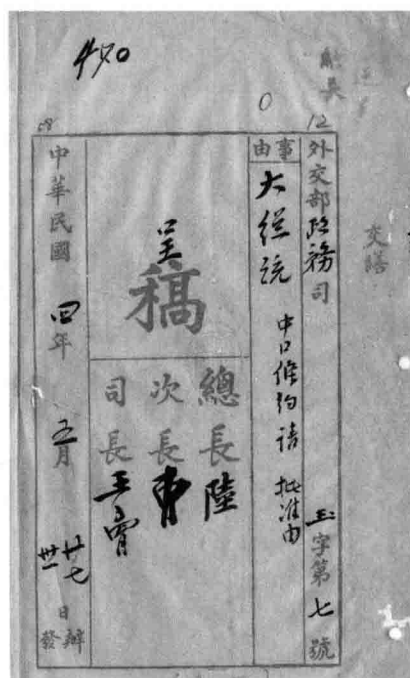 490
0
12
68
交繕
外交部政務司 字第七號
事由
大總統 中日條約請 批准由
呈
稿
總長陸
次長曹
司長王
中華民國四年五月
廿七 日辦
卅一 發